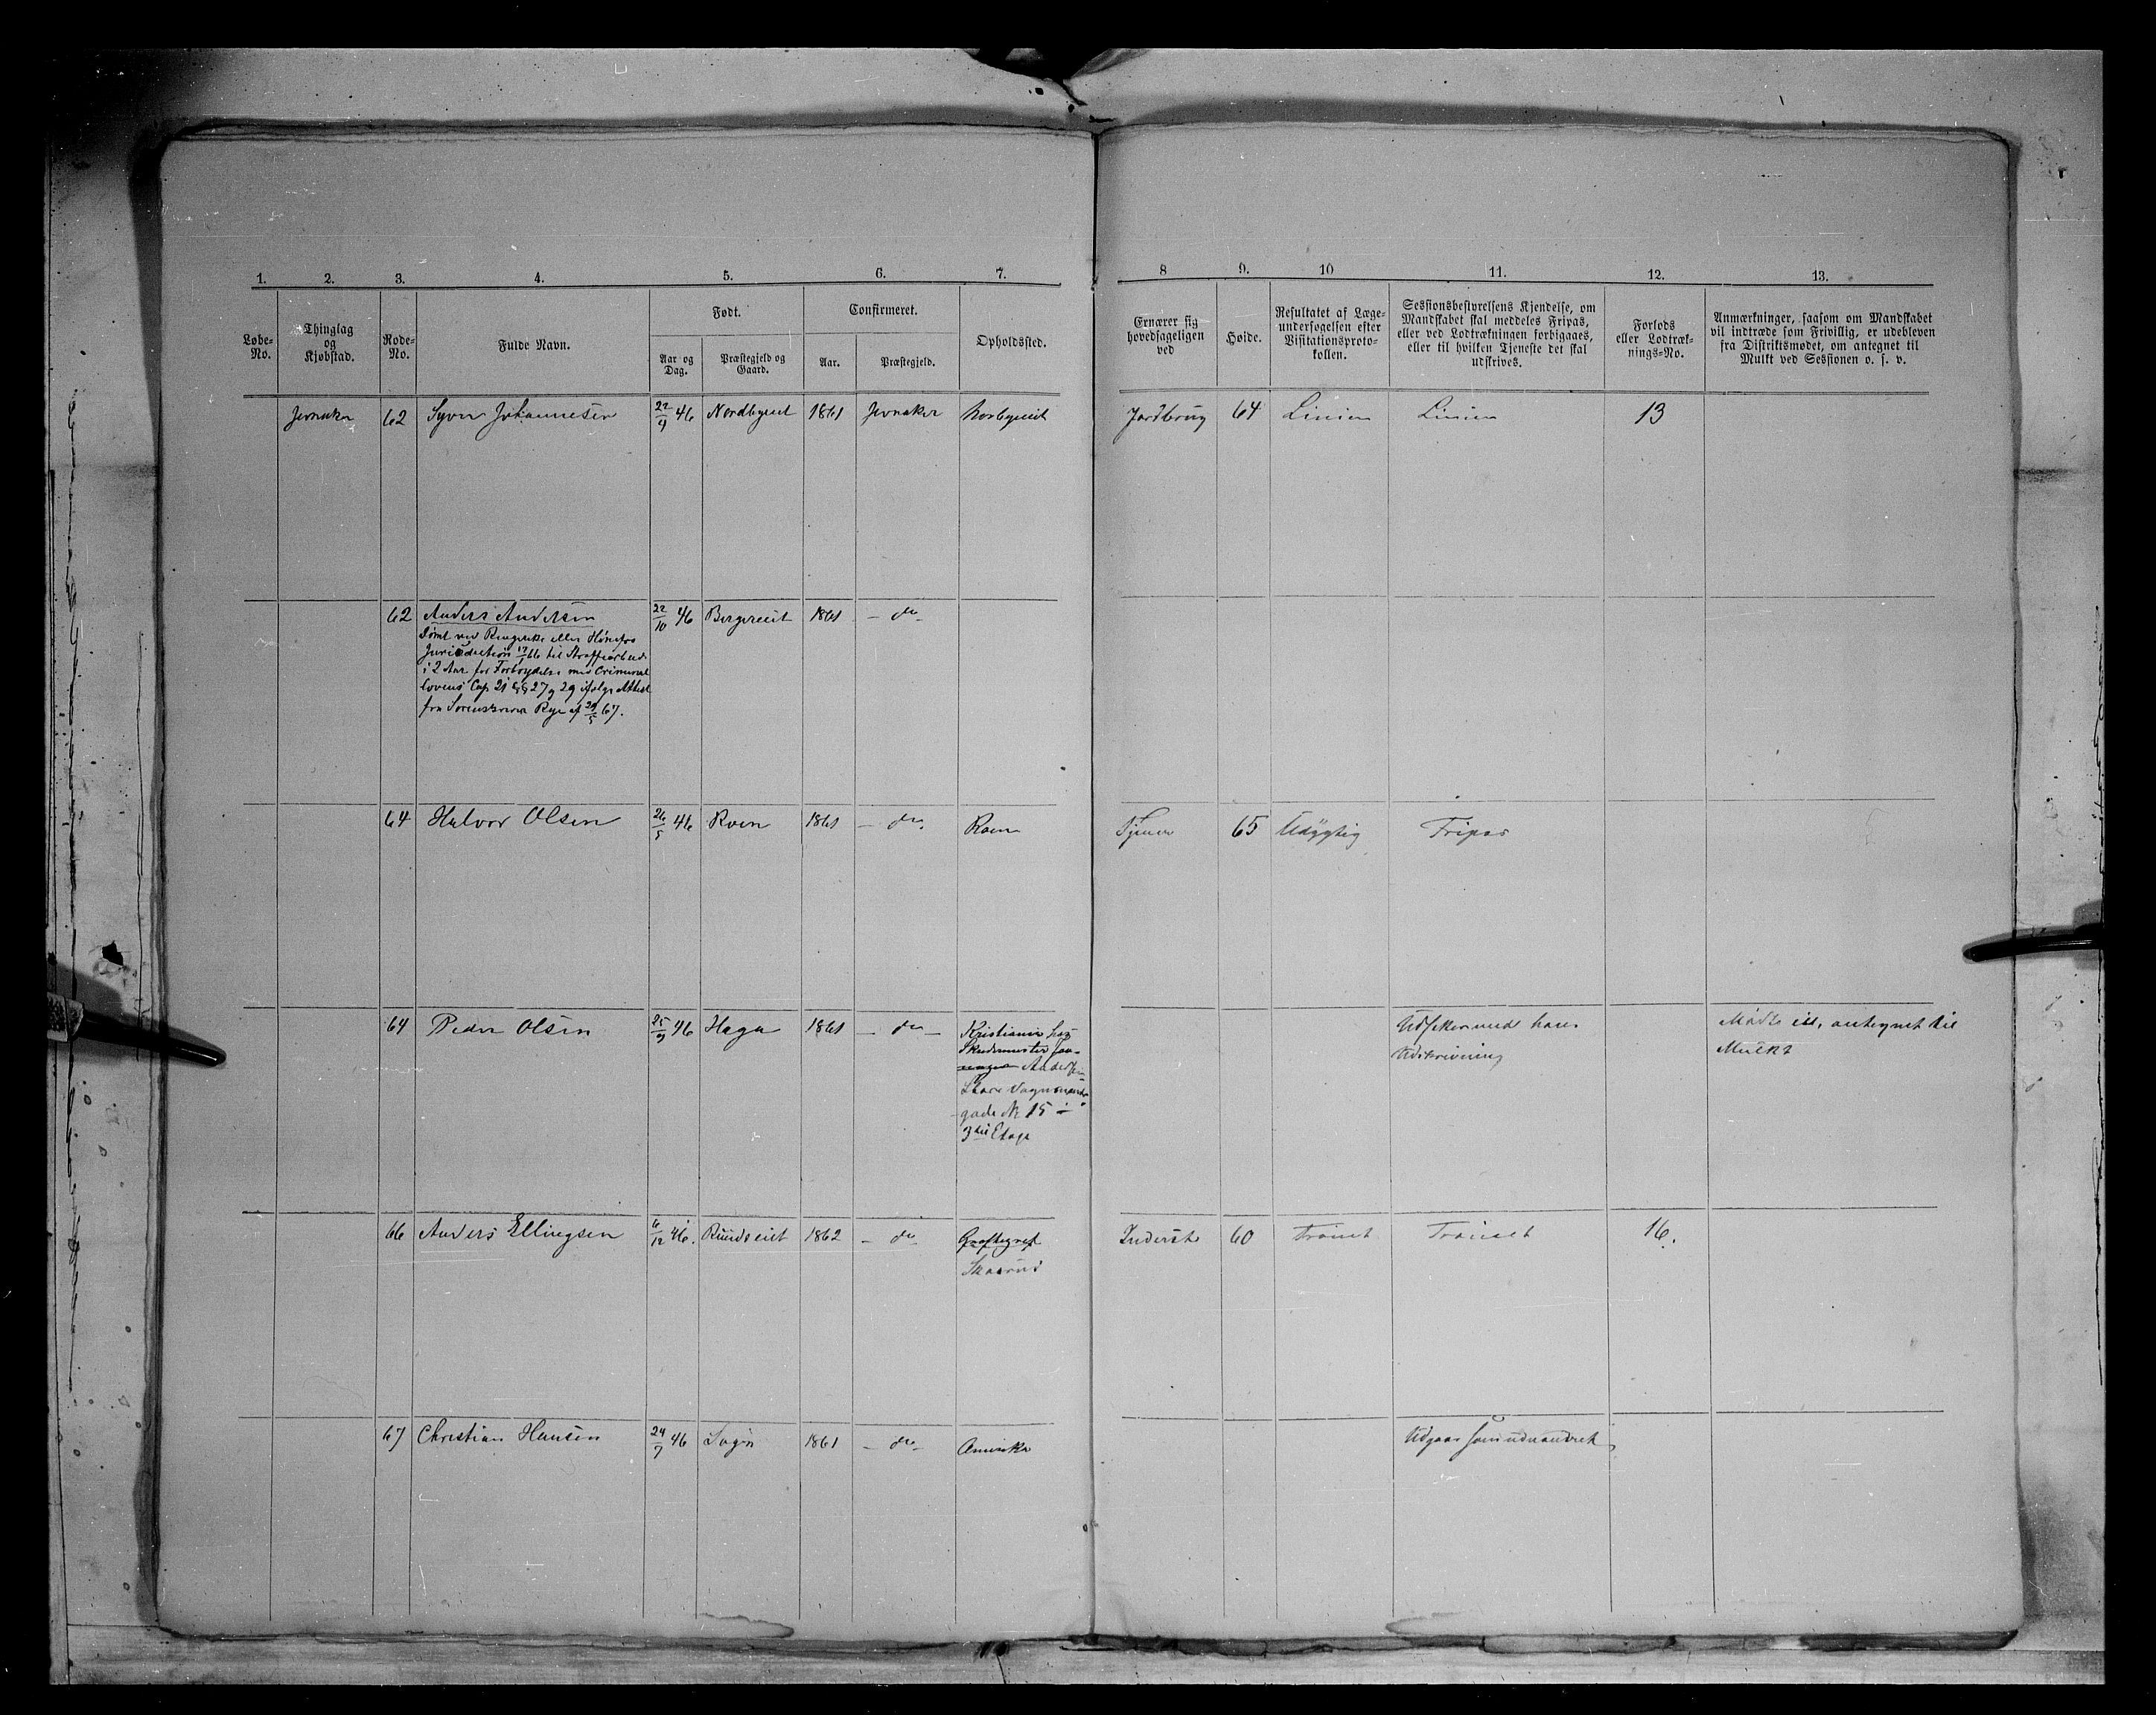 1. 2. 3. 4. 5. 6. 7. 8 9. 10 11. 12. 13.
Løbe-No. Thinglag og Kjøbstad. Rode-No. Fulde Navn. Født. Aar og Dag. Præstegjeld og Gaard. Confirmeret. Aar. Præstegjeld. Opholdssted.
Ernærer sig hovedsageligen ved
Høide.
Resultatet af Læge-
undersøgelsen efter
Visitationsproto-
kollen.
Sessionsbestyrelsens Kjendelse, om
Mandskabet skal meddeles Fripas,
eller ved Lodtrækningen forbigaaes,
eller til hvilken Tjeneste det skal
udskrives.
Forlods
eller Lodtræk-
nings-No.
Anmærkninger, saasom om Mandskabet
vil indtræde som Frivillig, er udebleven
fra Distriktsmødet, om antegnet til
Mulkt ved Sessionen o. s. v.
Jevnaker 62 Syver Johannesen 22/9 46 Nordbyeiet 1861 Jevnaker Norbyeiet Jordbrug 64 Linien Linien 13
62 Anders Andersen 22/10 46 Bergereiet 1861 — do
Dømt ved Ringerike eller Hønefos
Jurisdiction 17/ 66 til Straffearbeide
i 2 Aar for Forbrydelse mod Criminal
lovens Cap 21 §§ 27 og 29 ifølge Attest
fra Sorenskriver Rye af 29/5 67.
64 Halvor Olsen 26/5 46 Roen 1861 — do. Roen Tjener 65 Udygtig Fripas
64 Peder Olsen 25/9 46 Haga 1861 — do — Kristiania hos
Skredermester
Andersen
Store Vognmands
gade № 15 i
3die Etage
Udskrivning
Mødte ei, antegnet til
Mulkt
66 Anders Ellingsen 6/12 46. Rundseiet 1862 — do
Skaarud
Inderst 60 Trænet Trænet 16.
67 Christian Hansen 24/7 46 Sogn 1861 — do — Amerika Udgaar som udvandret